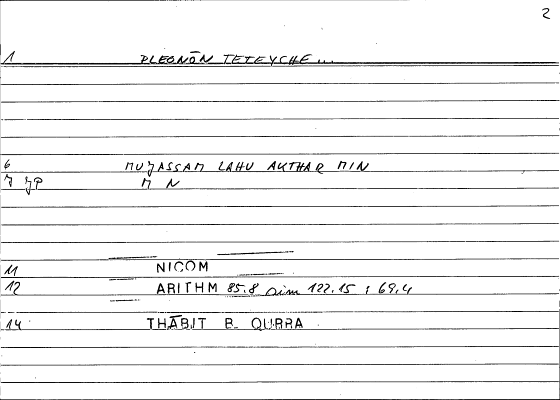 2
1 PLEONŌN TETEYCHE...
6 MUJASSAM LAHU AKTHAR MIN
7 M N
11 NICOM
12 ARITHM 85.8 122.15 ; 69,4
14 THĀBIT B. QURRA